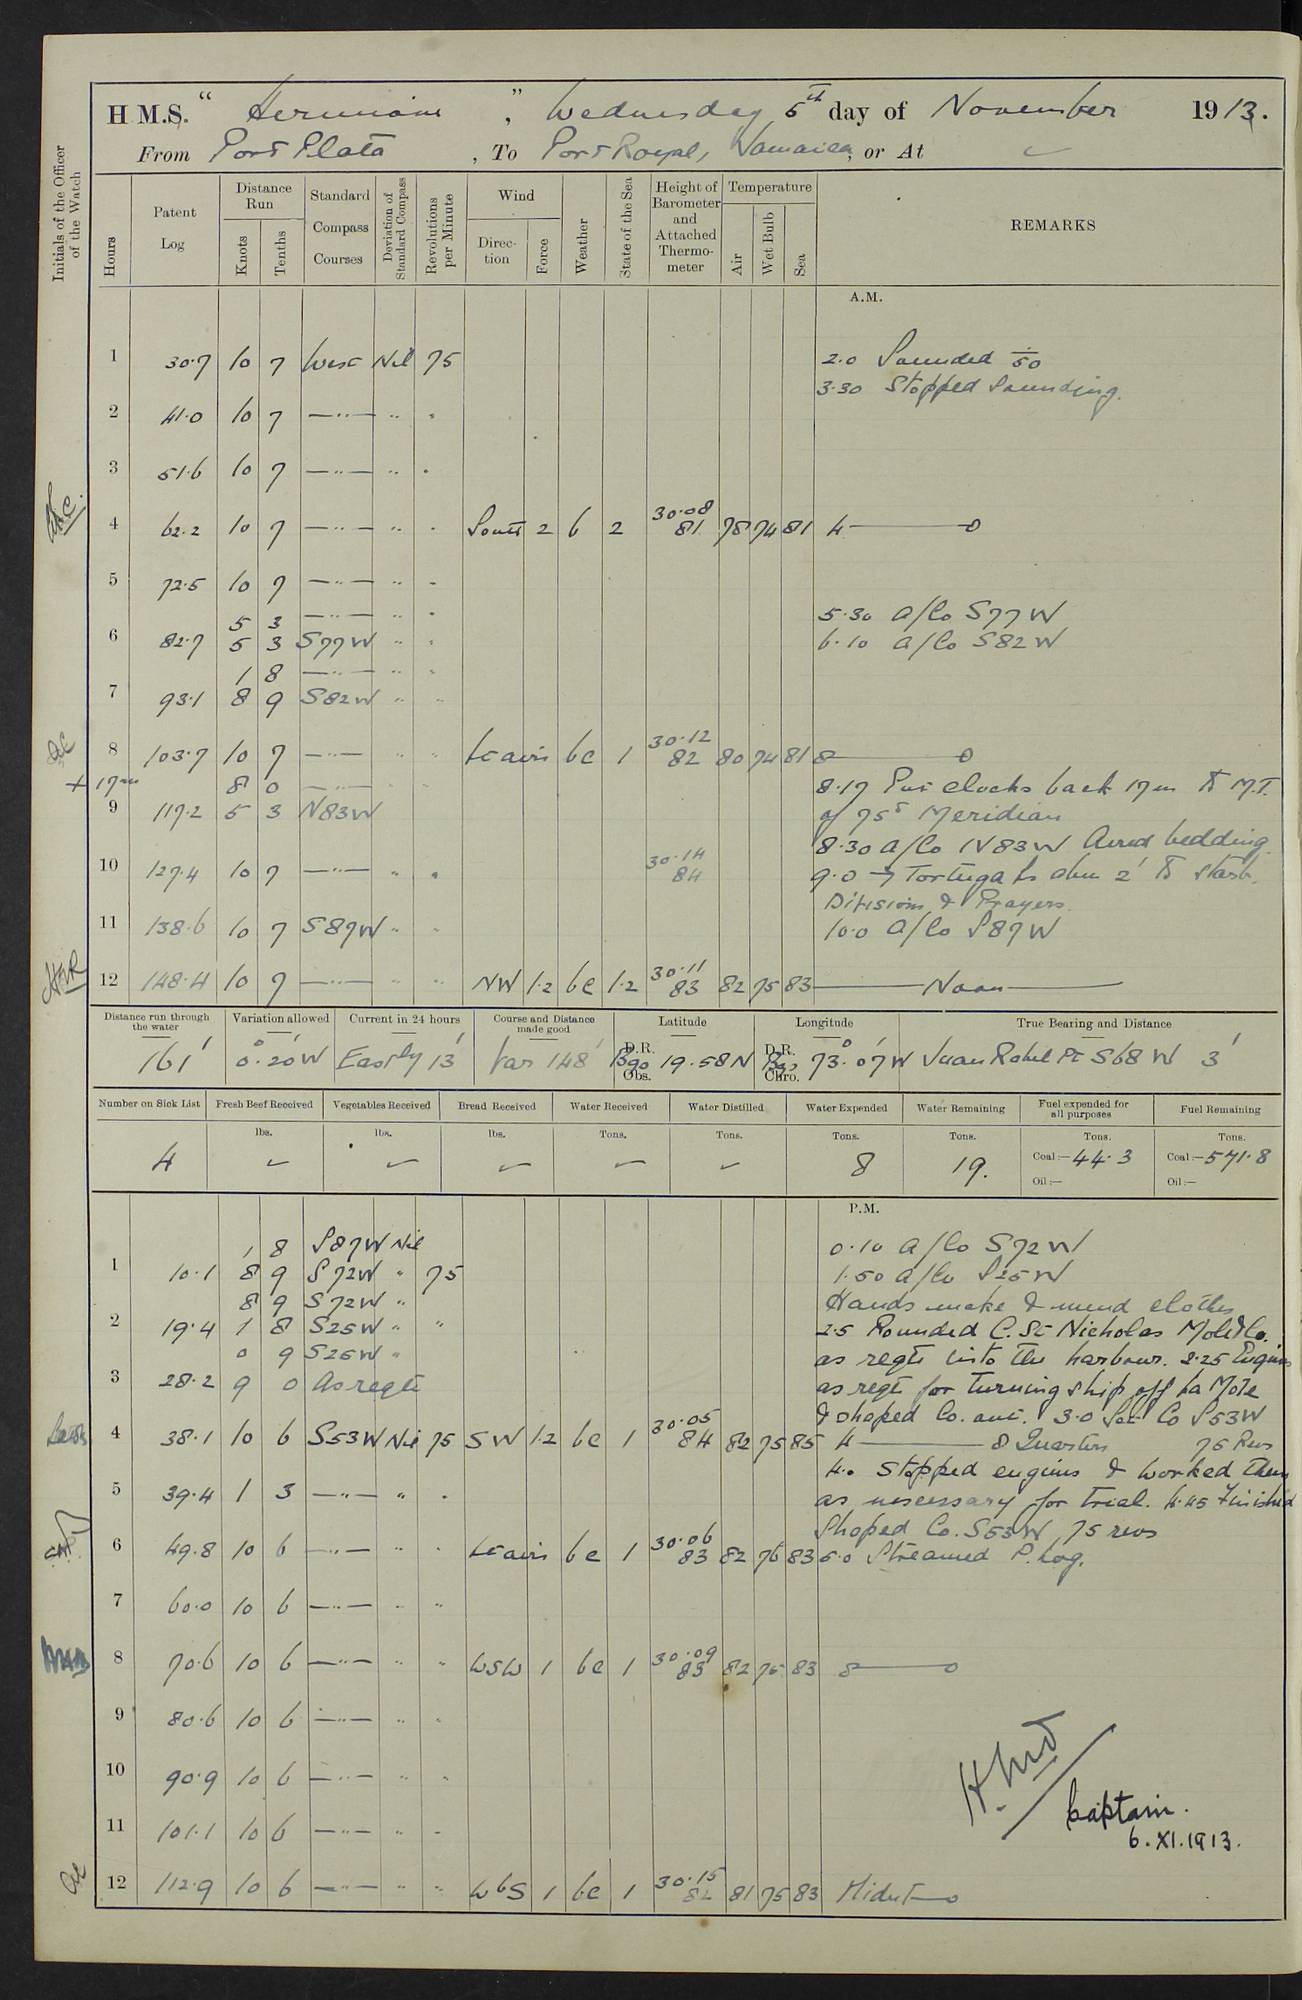 H.M.S. " Hermione ", Wednesday 5th day of November 1913.
From Port Plata, To Port Royal, Jamaica, or At ✓
Initials of the Officer of the Watch
Hours
Patent Log
Distance Run
Knots Tenths
Standard Compass Courses
Deviation of Standard Compass
Revolutions per Minute
Wind
Direction Force
Weather
State of the Sea
Height of Barometer and Attached Thermometer
Temperature
Air Wet Bulb Sea
REMARKS
A.M.
1 30.7 10 7 West Nil 75
2.0 Sounded 50
3.30 Stopped Sounding.
2 41.0 10 7 —"— " "
3 51.6 10 7 —"— " "
4 62.2 10 7 —"— " " South 2 b 2 30.08 81 78 74 81 4——0
5 72.5 10 7 —"— " "
5 3 —"— " " 5.30 A/Co S77W
6 82.7 5 3 S77W " " 6.10 A/Co S82W
1 8 —"— " "
7 93.1 8 9 S82W " "
8 103.7 10 7 —"— " " Lt airs bc 1 30.12 82 80 74 81 8——0
+ 17m 8 0 —"— " " 8.17 Put clocks back 17m to M.T.
9 117.2 5 3 N83W of 75° Meridian
8.30 A/Co N83W Aired bedding.
10 127.4 10 7 —"— " " 30.14 84 9.0 → Tortuga Is abm 2' to starb.
Divisions & Prayers.
11 138.6 10 7 S87W " " 10.0 A/Co S87W
12 148.4 10 7 —"— " " NW 1.2 bc 1.2 30.11 83 82 75 83 ——Noon——
Distance run through the water
Variation allowed
Current in 24 hours
Course and Distance made good
Latitude
Longitude
True Bearing and Distance
161' 0° 20' W Easly 13' Var 148' D.R. Bgs Obs. 19.58 N D.R. Bgs Chro. 73° 07' W Juan Rabel Pt S68W 3'
Number on Sick List
Fresh Beef Received
Vegetables Received
Bread Received
Water Received
Water Distilled
Water Expended
Water Remaining
Fuel expended for all purposes
Fuel Remaining
lbs. lbs. lbs. Tons. Tons. Tons. Tons. Tons. Tons.
4 ✓ ✓ ✓ ✓ ✓ 8 19. Coal:—44.3 Coal:—571.8
Oil:— Oil:—
P.M.
1 8 S87W Nil 0.10 A/Co S72W
1 10.1 8 9 S72W " 75 1.50 A/Co S25W
8 9 S72W " Hands make & mend clothes
2 19.4 1 8 S25W " " 2.5 Rounded C. St Nicholas Mole & Co.
0 9 S25W " as reqte into the harbour. 2.25 Engines
3 28.2 9 0 As reqte as reqte for turning ship off La Mole
& shaped Co. out. 3.0 Set Co S53W
4 38.1 10 6 S53W Nil 75 SW 1.2 bc 1 30.05 84 82 75 85 4——0 Quarters 75 Revs
4.0 Stopped engines & worked them
5 39.4 1 3 —"— " " as necessary for trial. 4.45 Finished
Shaped Co. S53W, 75 revs
6 49.8 10 6 —"— " " Lt airs bc 1 30.06 83 82 76 83 5.0 Streamed P. Log.
7 60.0 10 6 —"— " "
8 70.6 10 6 —"— " " WSW 1 bc 1 30.09 83 82 75 83 8——0
9 80.6 10 6 —"— " "
10 90.9 10 6 —"— " "
11 101.1 10 6 —"— " "
12 112.9 10 6 —"— " " WbS 1 bc 1 30.15 82 81 75 83 Midnt——0
Captain.
6.XI.1913.